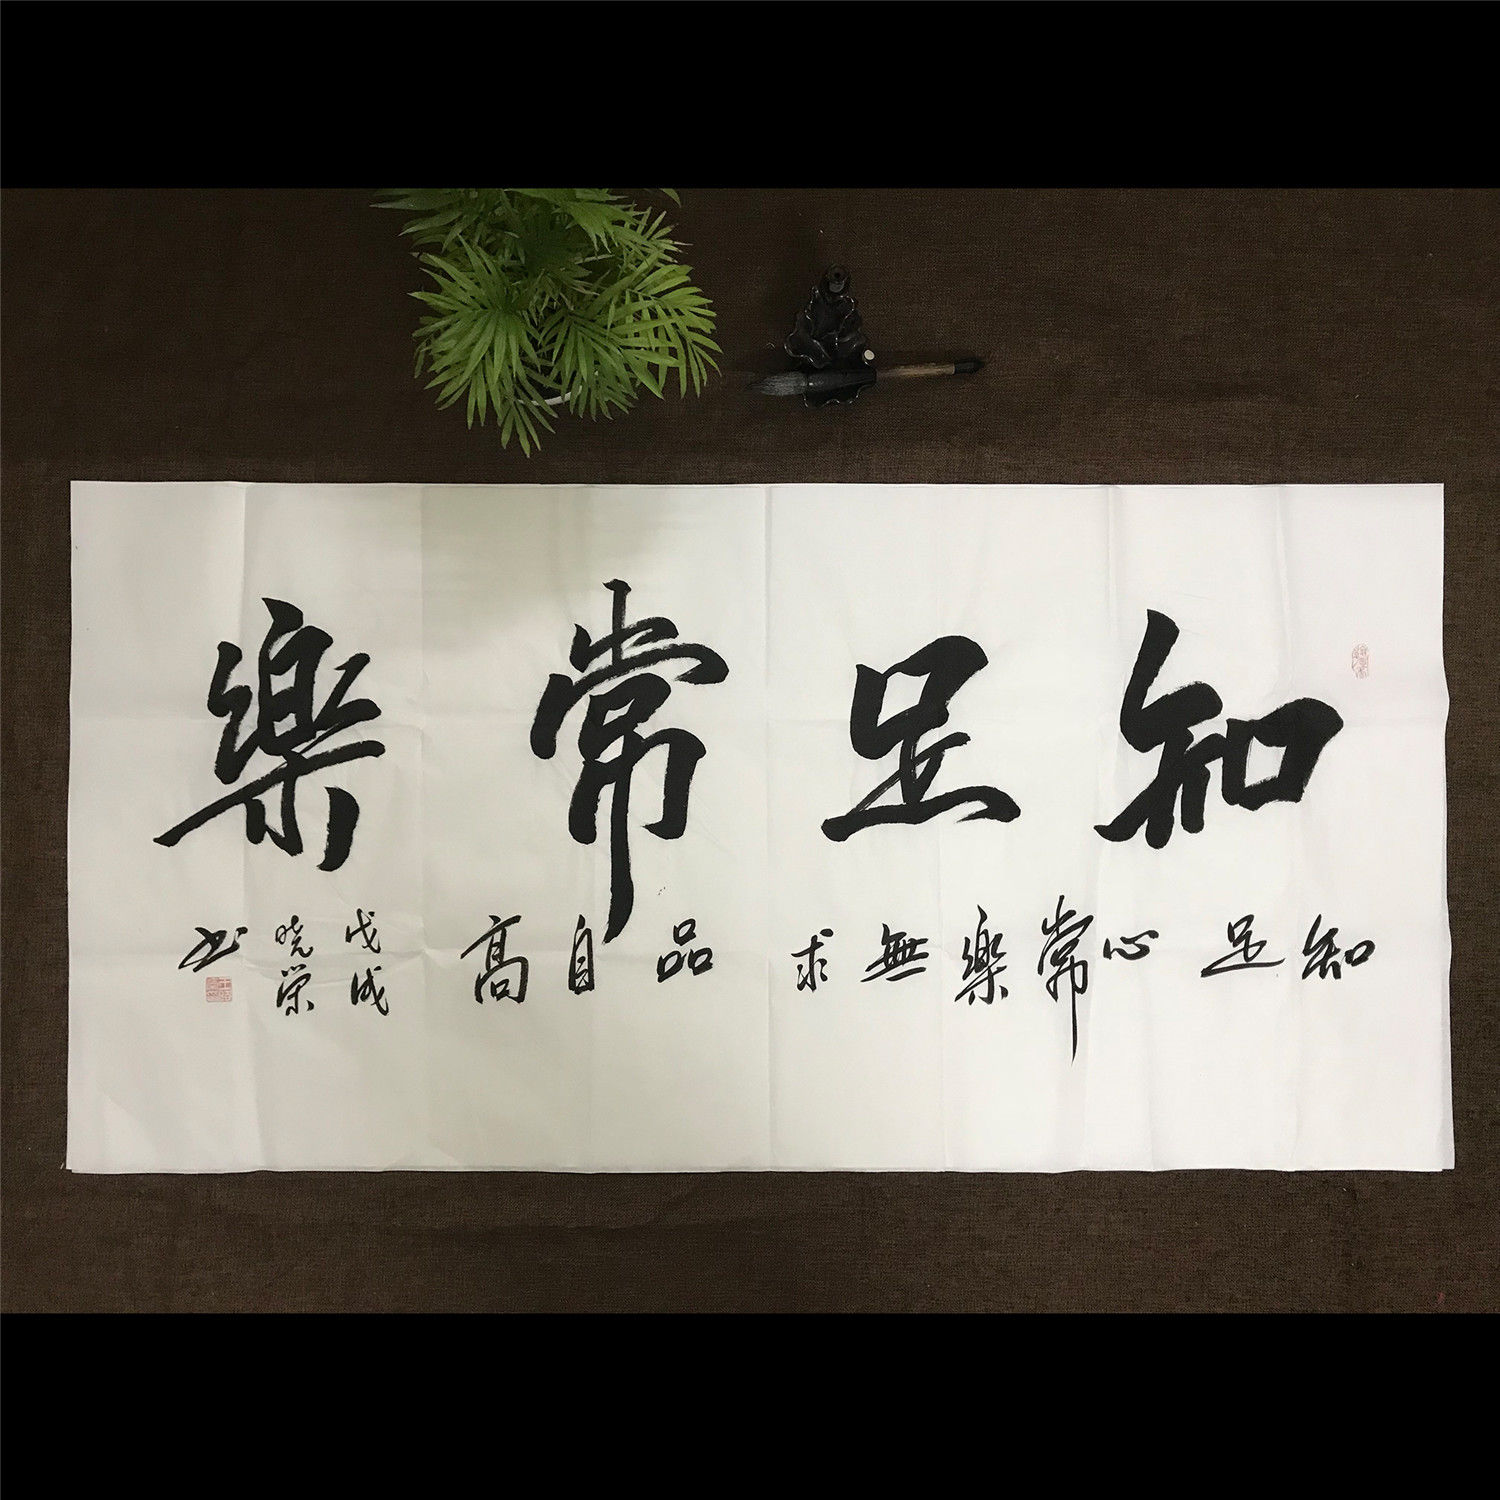 知足常樂
知足心常樂無求品自高
戊戌
曉荣
书